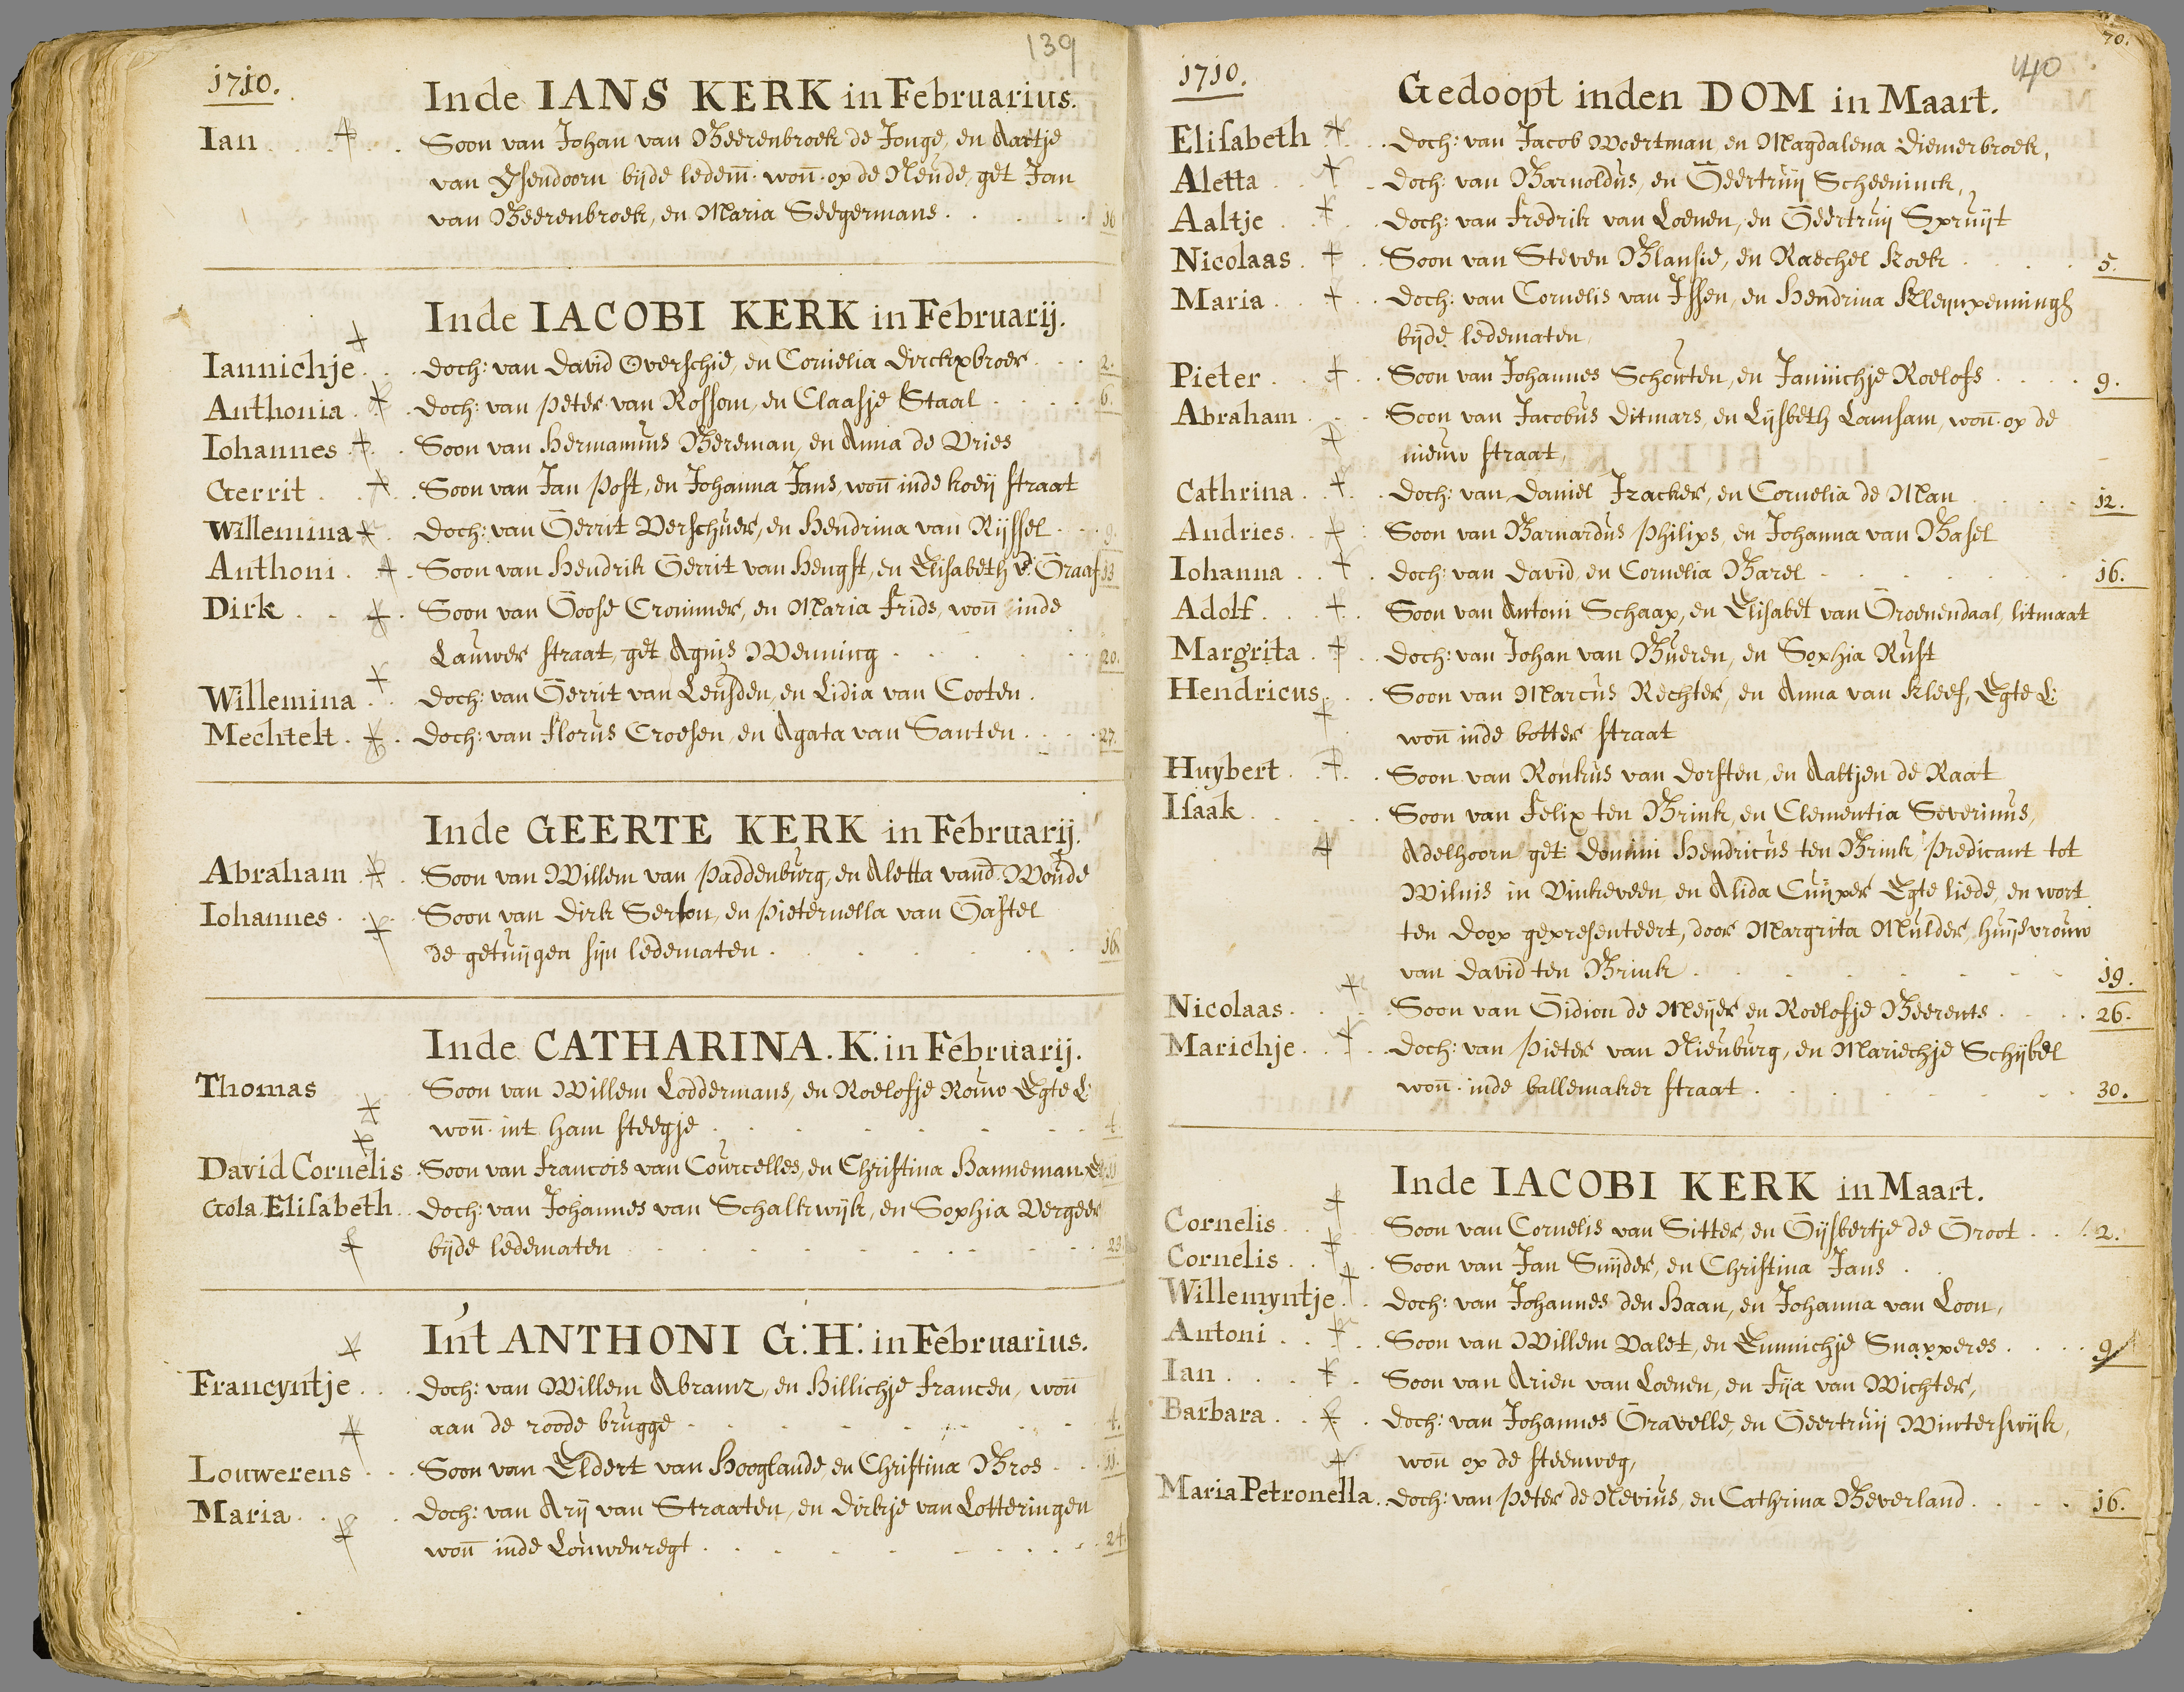 139
1710.
Inde IANS KERK in Februarius.
Ian . . . Soon van Johan van Beerenbroek de Jonge, en Aartje
van Ysendoorn bijde ledem. won. op de Neude, get Jan
van Beerenbroek, en Maria Seegermans . . . 16
Inde IACOBI KERK in Februarij.
Iannichje . . doch: van David Overschie, en Cornelia dirckxbroer . . . 2.
Anthonia . doch: van Peter van Rossom, en Claasje Staal . . . 6.
Iohannes . Soon van Hermannus Bereman, en Anna de Vries
Gerrit . . Soon van Jan Post, en Johanna Jans, won inde koeij straat
Willemina . doch: van Gerrit Verschuer, en Hendrina van Rijssel . . 9.
Anthoni . . Soon van Hendrik Gerrit van Hengst, en Elisabeth vd. Graaf 13
Dirk . . . Soon van Goose Crommer, en Maria Frids, won inde
Lauwer straat, get Agnis Wenning . . . 20.
Willemina . . doch: van Gerrit van Leusden, en Lidia van Cooten.
Mechtelt . . doch: van Florus Croesen, en Agata van Santen . . . 27.
Inde GEERTE KERK in Februarij.
Abraham . . Soon van Willem van Paddenburg, en Aletta vand. Woude
Iohannes . . Soon van Dirk Serton, en Pieternella van Gastel
de getuijgen sijn ledematen . . . 16
Inde CATHARINA. K: in Februarij.
Thomas Soon van Willem Loddermans, en Roelofje Rouw Egte L:
won. int ham steegje . . . 4.
David Cornelis . Soon van Francois van Courcelles, en Christina Hanneman E 11
Gola Elisabeth . . doch: van Johannes van Schalkwijk, en Sophia Vergeer
bijde ledematen . . . 23.
Int ANTHONI G: H: in Februarius.
Francyntje . . . doch: van Willem Abramz, en Hillichje Francen, won
aan de roode brugge . . . 4.
Louwerens . . . Soon van Eldert van Hooglande, en Christina Bros . . 11.
Maria . . . doch: van Arij van Straaten, en dirkje van Lotteringen
won inde Louwenregt . . . 24.
70.
140
1710.
Gedoopt inden DOM in Maart.
Elisabeth . . doch: van Jacob Woertman, en Magdalena Diemerbroek,
Aletta . . . doch: van Barnoldus, en Geertruij Scheeninck,
Aaltje . . . doch: van Fredrik van Loenen, en Geertruij Spruijt
Nicolaas . . . Soon van Steven Blansie, en Raechel Koek . . . 5.
Maria . . . doch: van Cornelis van Issen, en Hendrina Kleynpenningh
bijde ledematen
Pieter . . . Soon van Johannes Schouten, en Jannichje Roelofs . . . 9.
Abraham . . Soon van Jacobus Ditmars, en Lijsbeth Lamsam, won. op de
nieuw straat,
Cathrina . . . doch: van Daniel Jracker, en Cornelia de Man . . . 12.
Andries . . : Soon van Barnardus Philips, en Johanna van Basel
Iohanna . . . doch: van David, en Cornelia Barel . . . 16.
Adolf . . . Soon van Antoni Schaap, en Elisabet van Groenendaal, litmaat
Margrita . . . doch: van Johan van Bueren, en Sophia Rust
Hendricus . . Soon van Marcus Rechter, en Anna van Kleef, Egte L:
won inde botter straat
Huybert . . . Soon van Ronkus van Dorsten, en Aaltjen de Raat
Isaak . . . Soon van Felix ten Brink, en Clementia Severinus,
Adelhoorn get: Domini Hendricus ten Brink, Predicant tot
Wilnis in Vinkeveen en Alida Cuyper Egte liede, en wort
ten doop gepresenteert, door Margrita Mulder, huijsvrouw
van David ten Brink . . . 19.
Nicolaas . . . Soon van Gidion de Meijer en Roelofje Beerents . . . 26.
Marichje . . . doch: van Pieter van Nieuburg, en Mariechje Schijbel
won. inde ballemaker straat . . . 30.
Inde IACOBI KERK in Maart.
Cornelis . . Soon van Cornelis van Sitter, en Gijsbertje de Groot . . . 2.
Cornelis . . . Soon van Jan Snijder, en Christina Jans .
Willemyntje . . doch: van Johannes den Haan, en Johanna van Loon,
Antoni . . . Soon van Willem Valet, en Eunnichje Snapperes . . . 9
Ian . . . Soon van Arien van Loenen, en Fija van Wichter,
Barbara . . . doch: van Johannes Gravelle, en Geertruij Winterswijk,
won op de steenweg,
Maria Petronella . doch: van Peter de Nevius, en Cathrina Beverland . . . 16.